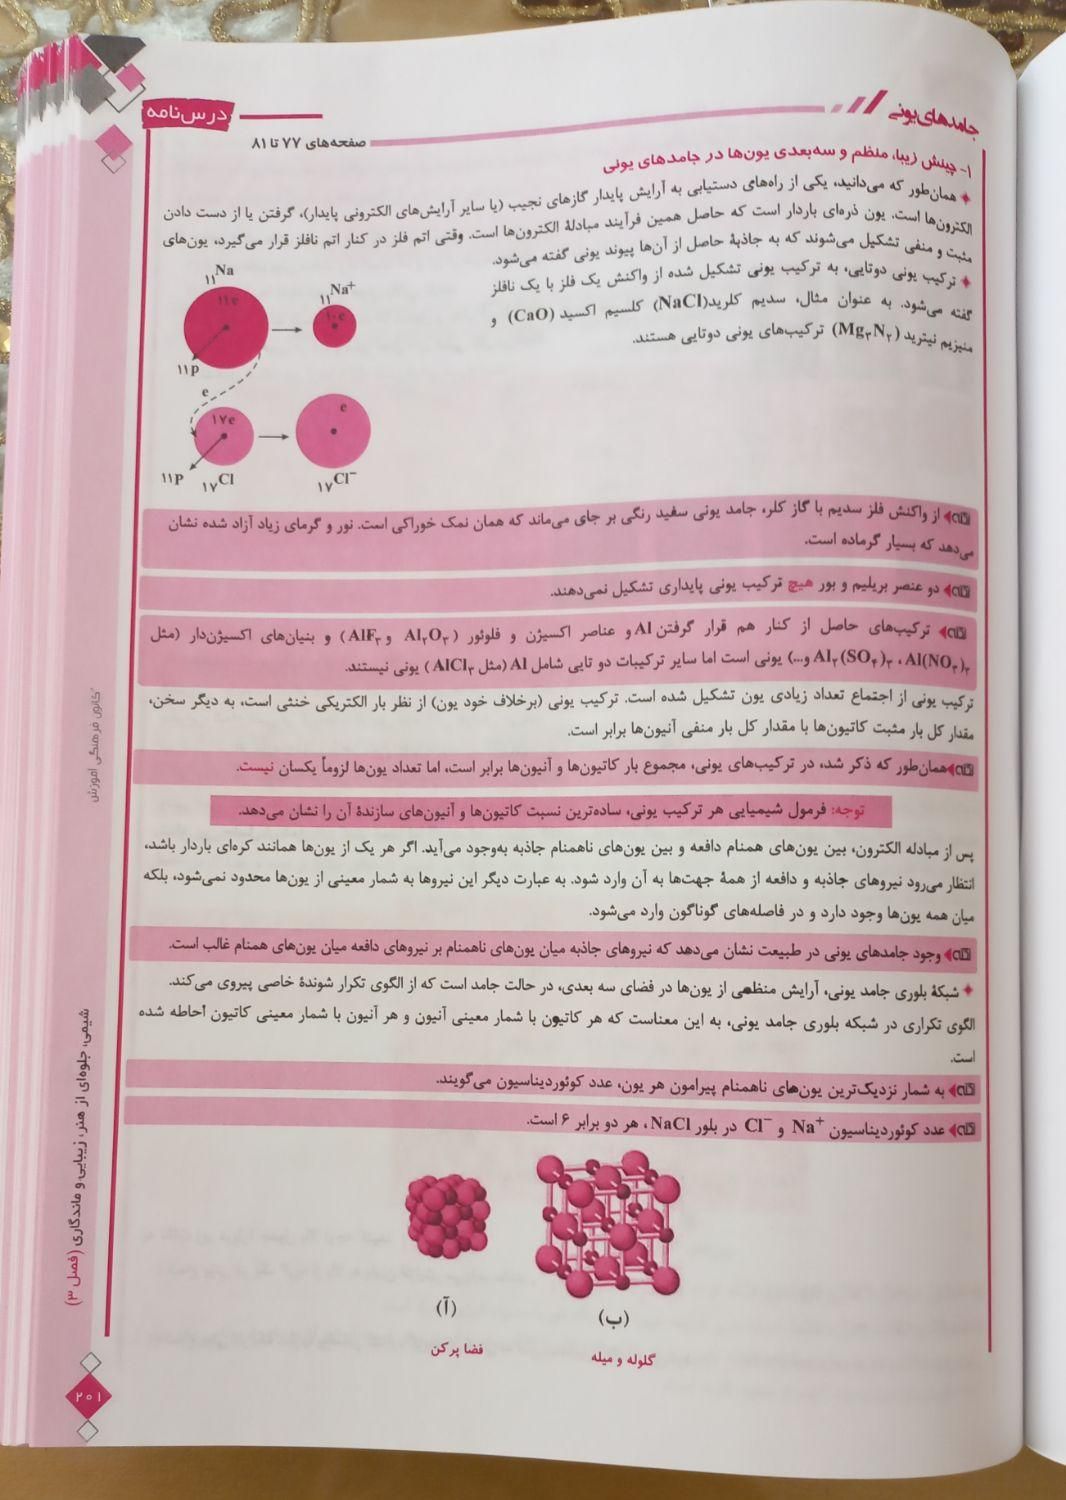 جامدهای یونی
درس‌نامه
صفحه‌های ۷۷ تا ۸۱
۱- چینش زیبا، منظم و سه‌بعدی یون‌ها در جامدهای یونی
همان‌طور که می‌دانید، یکی از راه‌های دستیابی به آرایش پایدار گازهای نجیب (یا سایر آرایش‌های الکترونی پایدار)، گرفتن یا از دست دادن
الکترون‌ها است. یون ذره‌ای باردار است که حاصل همین فرآیند مبادلهٔ الکترون‌ها است. وقتی اتم فلز در کنار اتم نافلز قرار می‌گیرد، یون‌های
مثبت و منفی تشکیل می‌شوند که به جاذبهٔ حاصل از آن‌ها پیوند یونی گفته می‌شود.
ترکیب یونی دوتایی، به ترکیب یونی تشکیل شده از واکنش یک فلز با یک نافلز
گفته می‌شود. به عنوان مثال، سدیم کلرید(NaCl) کلسیم اکسید (CaO) و
منیزیم نیترید (Mg۳N۲) ترکیب‌های یونی دوتایی هستند.
۱۱Na
۱۱Na+
۱۱e
۱۰e
۱۱p
e
۱۷e
e
۱۱P
۱۷Cl
۱۷Cl−
نکته از واکنش فلز سدیم با گاز کلر، جامد یونی سفید رنگی بر جای می‌ماند که همان نمک خوراکی است. نور و گرمای زیاد آزاد شده نشان
می‌دهد که بسیار گرماده است.
نکته دو عنصر بریلیم و بور هیچ ترکیب یونی پایداری تشکیل نمی‌دهند.
نکته ترکیب‌های حاصل از کنار هم قرار گرفتن Al و عناصر اکسیژن و فلوئور (Al۲O۳ و AlF۳) و بنیان‌های اکسیژن‌دار (مثل
Al(NO۳)۳ ، Al۲(SO۴)۳ و...) یونی است اما سایر ترکیبات دو تایی شامل Al (مثل AlCl۳) یونی نیستند.
ترکیب یونی از اجتماع تعداد زیادی یون تشکیل شده است. ترکیب یونی (برخلاف خود یون) از نظر بار الکتریکی خنثی است، به دیگر سخن،
مقدار کل بار مثبت کاتیون‌ها با مقدار کل بار منفی آنیون‌ها برابر است.
نکته همان‌طور که ذکر شد، در ترکیب‌های یونی، مجموع بار کاتیون‌ها و آنیون‌ها برابر است، اما تعداد یون‌ها لزوماً یکسان نیست.
توجه: فرمول شیمیایی هر ترکیب یونی، ساده‌ترین نسبت کاتیون‌ها و آنیون‌های سازندهٔ آن را نشان می‌دهد.
پس از مبادله الکترون، بین یون‌های همنام دافعه و بین یون‌های ناهمنام جاذبه به‌وجود می‌آید. اگر هر یک از یون‌ها همانند کره‌ای باردار باشد،
انتظار می‌رود نیروهای جاذبه و دافعه از همهٔ جهت‌ها به آن وارد شود. به عبارت دیگر این نیروها به شمار معینی از یون‌ها محدود نمی‌شود، بلکه
میان همه یون‌ها وجود دارد و در فاصله‌های گوناگون وارد می‌شود.
نکته وجود جامدهای یونی در طبیعت نشان می‌دهد که نیروهای جاذبه میان یون‌های ناهمنام بر نیروهای دافعه میان یون‌های همنام غالب است.
شبکهٔ بلوری جامد یونی، آرایش منظمی از یون‌ها در فضای سه بعدی، در حالت جامد است که از الگوی تکرار شوندهٔ خاصی پیروی می‌کند.
الگوی تکراری در شبکه بلوری جامد یونی، به این معناست که هر کاتیون با شمار معینی آنیون و هر آنیون با شمار معینی کاتیون احاطه شده
است.
نکته به شمار نزدیک‌ترین یون‌های ناهمنام پیرامون هر یون، عدد کوئوردیناسیون می‌گویند.
نکته عدد کوئوردیناسیون Na+ و Cl− در بلور NaCl ، هر دو برابر ۶ است.
(ب)
(آ)
گلوله و میله
فضا پرکن
کانون فرهنگی آموزش
شیمی، جلوه‌ای از هنر، زیبایی و ماندگاری (فصل ۳)
۲۰۱